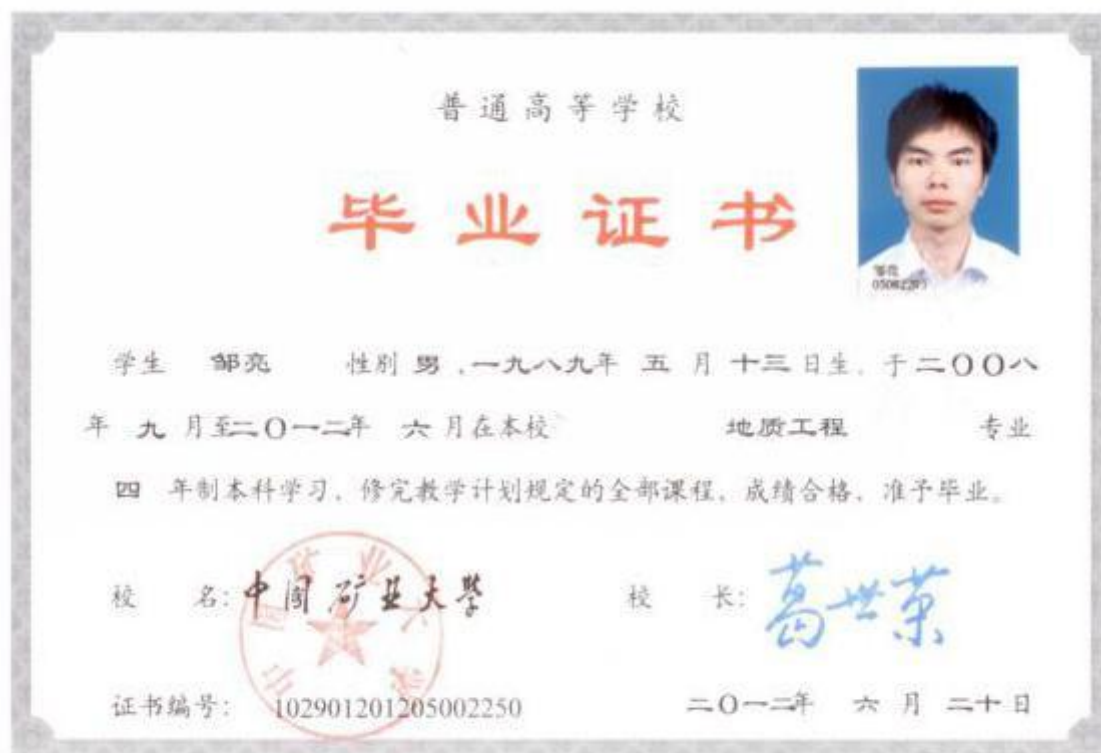 普通高等学校
毕业证书
邹亮
学生 邹亮 性别 男,一九八九年 五 月 十三 日生,于二〇〇八
年 九 月至二〇一二年 六 月在本校 地质工程 专业
四 年制本科学习,修完教学计划规定的全部课程,成绩合格,准予毕业。
校 名:中国矿业大学 校 长:葛世荣
证书编号: 102901201205002250 二〇一二年 六 月 二十 日